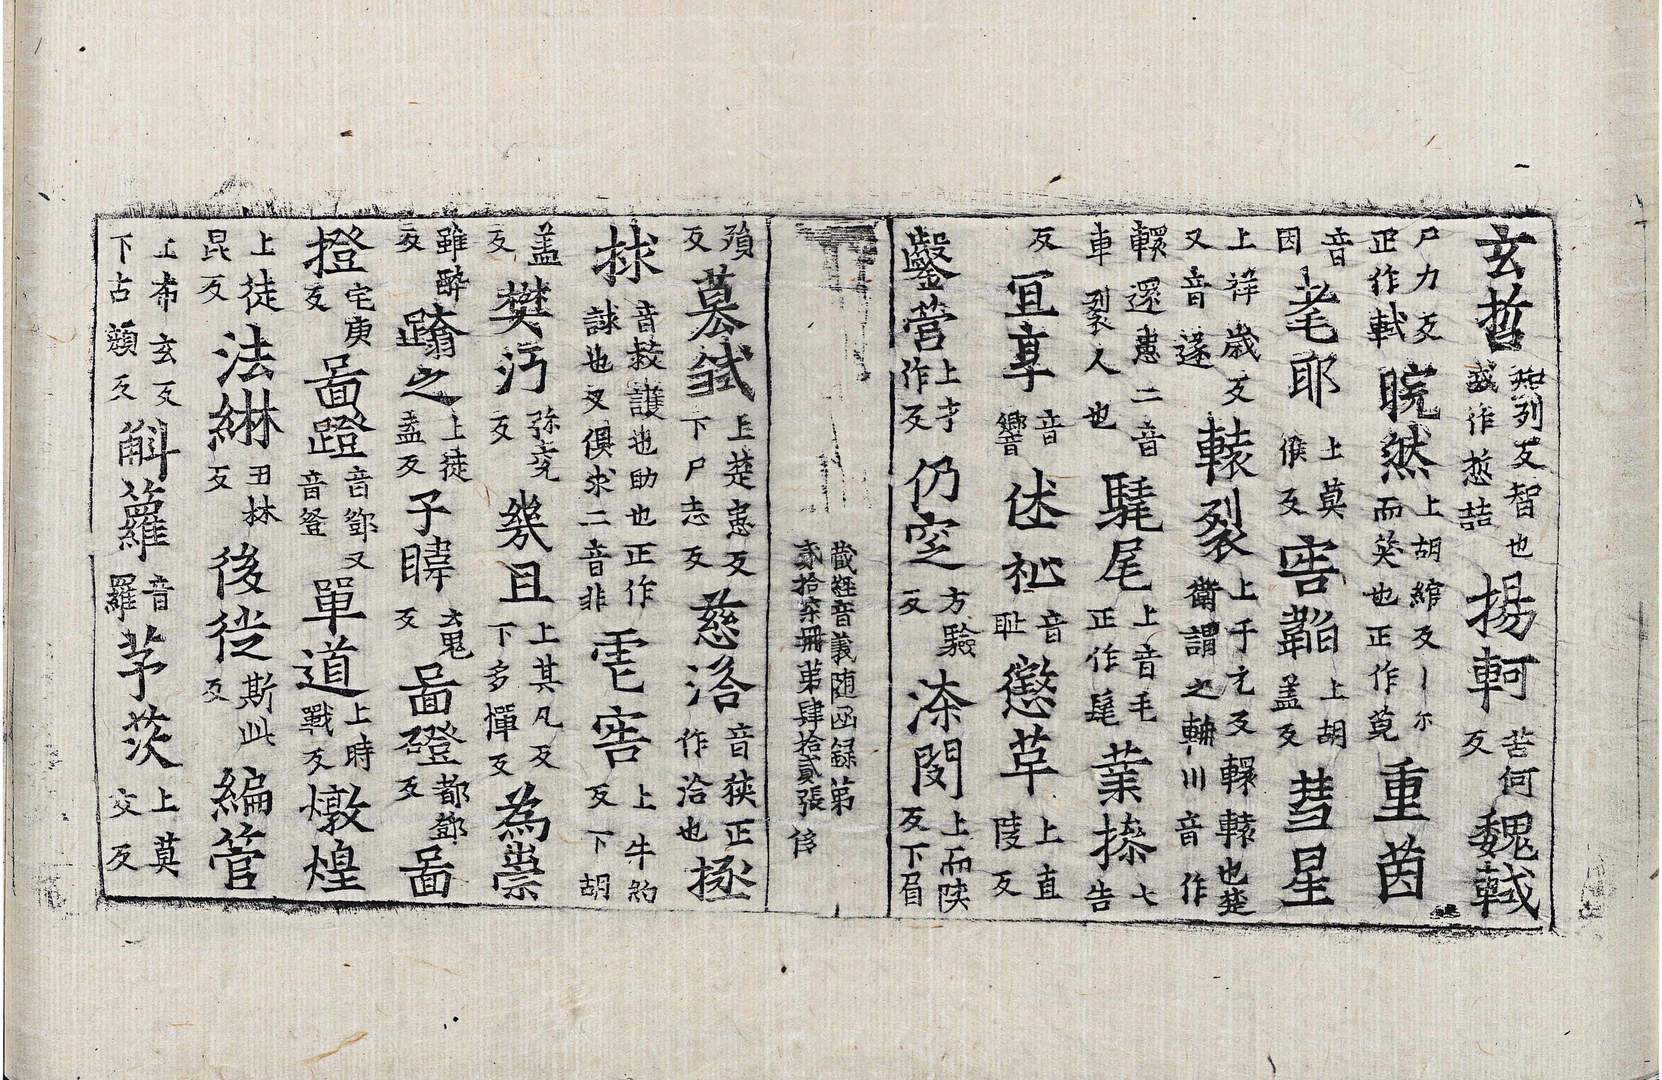 玄哲知列反智也或作悊喆揚軻苦何反魏軾
尸力反正作軾睆然上胡綰反丨尒而笑也正作莧重茵
音因耄耶上莫俟反害鞱上胡盖反彗星
上祥歲反又音遂轅裂上于元反轘轅也楚衛謂之輈川音作
轘還患二音車裂人也㲠尾上音毛正作髦業搸七告
反冝享音響㑅祉音耻懲草上直陵反
鑿营上才作反仍窆方驗反渿閔上而陝反下眉
藏經音義随函録第貳拾柒冊第肆拾貳張
殞反 慕弑上楚患反下尸志反慈洽音狹正作洽也拯
捄音救護也助也正作䛔也又俱求二音非雹害上牛約反下胡
盖反樊沔弥兖反幾且上其凡反下多憚反為祟
雖醉反蹹之上徒盍反子暐云鬼反啚磴都鄧反啚
撜宅庚反啚蹬音鄧又音登單道上時戰反燉煌
上徒昆反法綝丑林反後徙斯此反編管
上布玄反下古顔反斛蘿音羅茅茨上莫交反